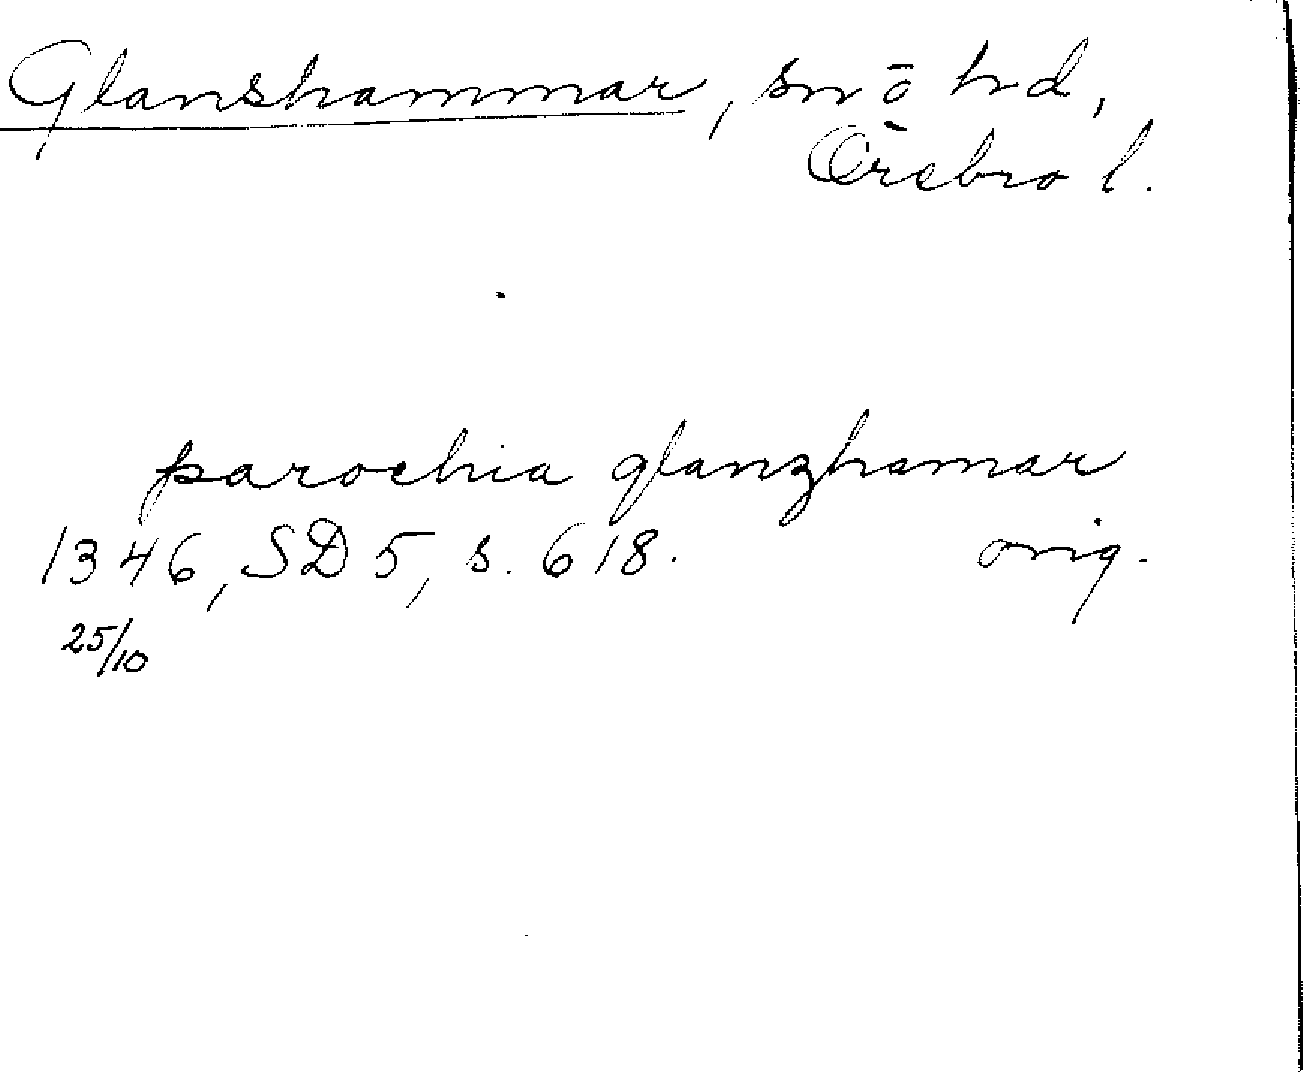 Glanshammar, sn ō hd,
Örebro l.
parochia glanzhamar
1346, SD 5, s. 618. orig.
25/10